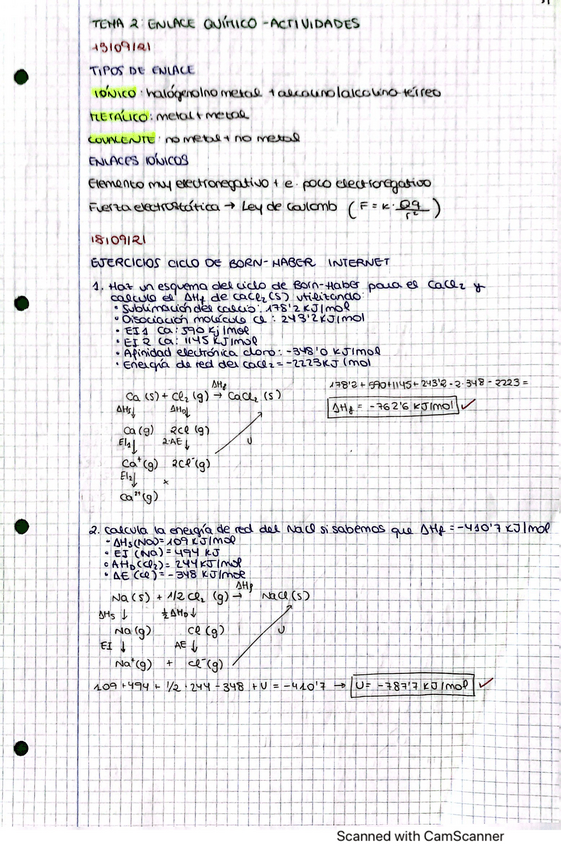 TEMA 2: ENLACE QUÍMICO - ACTIVIDADES
13/09/21
TIPOS DE ENLACE
IÓNICO: halógeno/no metal + alcalino/alcalino-térreo
METÁLICO: metal + metal
COVALENTE: no metal + no metal
ENLACES IÓNICOS
Elemento muy electronegativo + e. poco electronegativo
Fuerza electrostática → Ley de Coulomb (F = K · Qq / r²)
18/09/21
EJERCICIOS CICLO DE BORN-HABER INTERNET
1. Haz un esquema del ciclo de Born-Haber para el CaCl₂ y
calcula el ΔHf de CaCl₂(s) utilizando:
• Sublimación del calcio: 178'2 KJ/mol
• Disociación molécula Cl: 243'2 KJ/mol
• EI 1 Ca: 590 Kj/mol
• EI 2 Ca: 1145 KJ/mol
• Afinidad electrónica cloro: -348'0 KJ/mol
• Energía de red del CaCl₂ = -2223 KJ/mol
ΔHf
Ca(s) + Cl₂(g) → CaCl₂(s)
ΔHs↓ ΔHD↓
Ca(g) 2Cl(g)
EI₁↓ 2·AE↓ U
Ca⁺(g) 2Cl⁻(g)
EI₂↓
Ca²⁺(g)
178'2 + 590 + 1145 + 243'2 - 2·348 - 2223 =
ΔHf = -762'6 KJ/mol ✓
2. Calcula la energía de red del NaCl si sabemos que ΔHf = -410'7 KJ/mol
• ΔHs(Na) = 109 KJ/mol
• EI (Na) = 494 KJ
• ΔHD(Cl₂) = 244 KJ/mol
• ΔE(Cl) = -348 KJ/mol
ΔHf
Na(s) + 1/2 Cl₂(g) → NaCl(s)
ΔHs↓ ½ΔHD↓
Na(g) Cl(g)
EI↓ AE↓ U
Na⁺(g) + Cl⁻(g)
109 + 494 + 1/2 · 244 - 348 + U = -410'7 → U = -787'7 KJ/mol ✓
Scanned with CamScanner